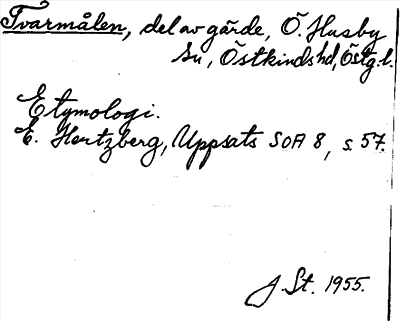 Tvarmålen, del av gärde, Ö. Husby
sn, Östkinds hd, Östg. l.
Etymologi.
E. Hertzberg, Uppsats SOÄ 8, s. 57.
J. St. 1955.